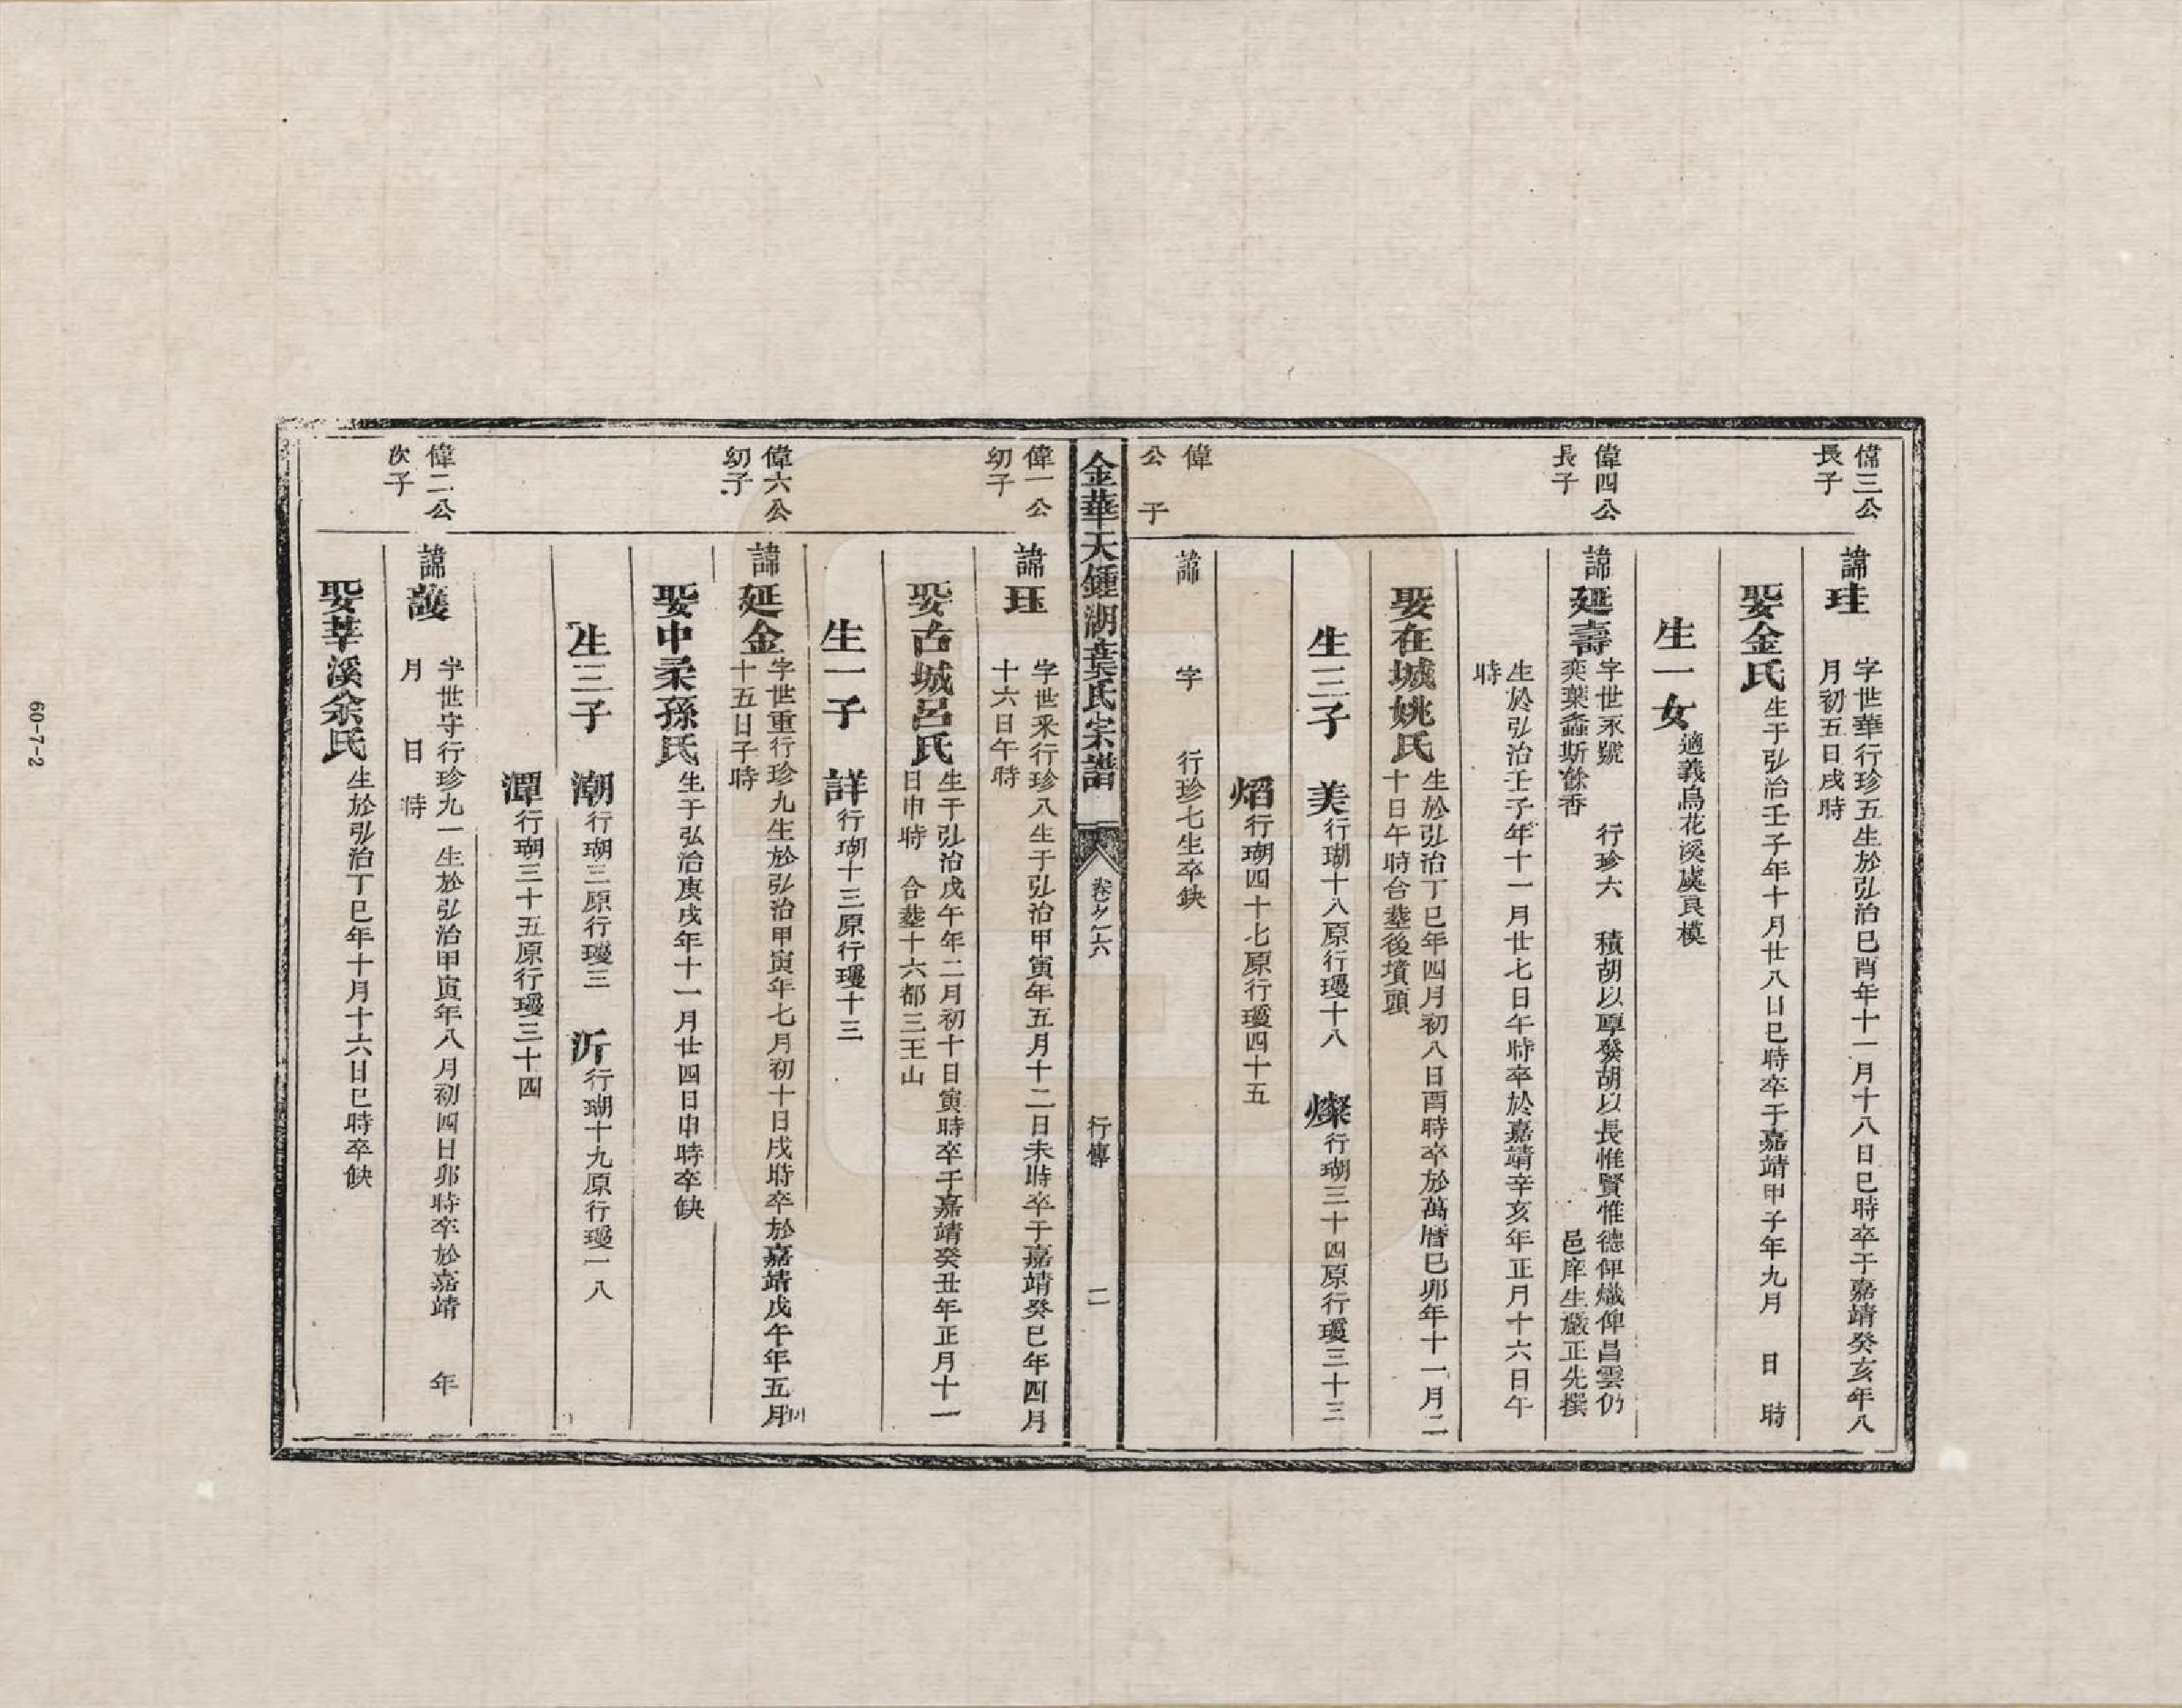 偉三公
長子
諱珪
字世華行珍五生於弘治己酉年十一月十八日巳時卒于嘉靖癸亥年八
月初五日戌時
娶金氏
生于弘治壬子年十月廿八日巳時卒于嘉靖甲子年九月　日　時
生一女
適義烏花溪虞良模
偉四公
長子
諱延壽
字世永號　　行珍六　積胡以厚發胡以長惟賢惟德俾熾俾昌雲仍
奕葉螽斯餘香　　邑庠生嚴正先撰
生於弘治壬子年十一月廿七日午時卒於嘉靖辛亥年正月十六日午
時
娶在城姚氏
生於弘治丁巳年四月初八日酉時卒於萬曆己卯年十一月二
十日午時合塟後墳頭
生三子　美行瑚十八原行瓊十八　燦行瑚三十四原行瓊三十三
熖行瑚四十七原行瓊四十五
偉
公　子
諱　　字　　行珍七生卒缺
金華天鍾湖葉氏宗譜　卷之六　行傳　二
偉一公
幼子
諱珏
字世釆行珍八生于弘治甲寅年五月十二日未時卒于嘉靖癸巳年四月
十六日午時
娶古城呂氏
生于弘治戊午年二月初十日寅時卒于嘉靖癸丑年正月十一
日申時　合塟十六都三王山
生一子　詳行瑚十三原行瓊十三
偉六公
幼子
諱延金
字世重行珍九生於弘治甲寅年七月初十日戌時卒於嘉靖戊午年五月
十五日子時
娶中柔孫氏
生于弘治庚戌年十一月廿四日申時卒缺
生三子　潮行瑚三原行瓊三　沂行瑚十九原行瓊一八
潭行瑚三十五原行瓊三十四
偉二公
次子
諱護
字世守行珍九一生於弘治甲寅年八月初四日卯時卒於嘉靖　　年
月　　日　時
娶莘溪余氏
生於弘治丁巳年十月十六日巳時卒缺
60-7-2